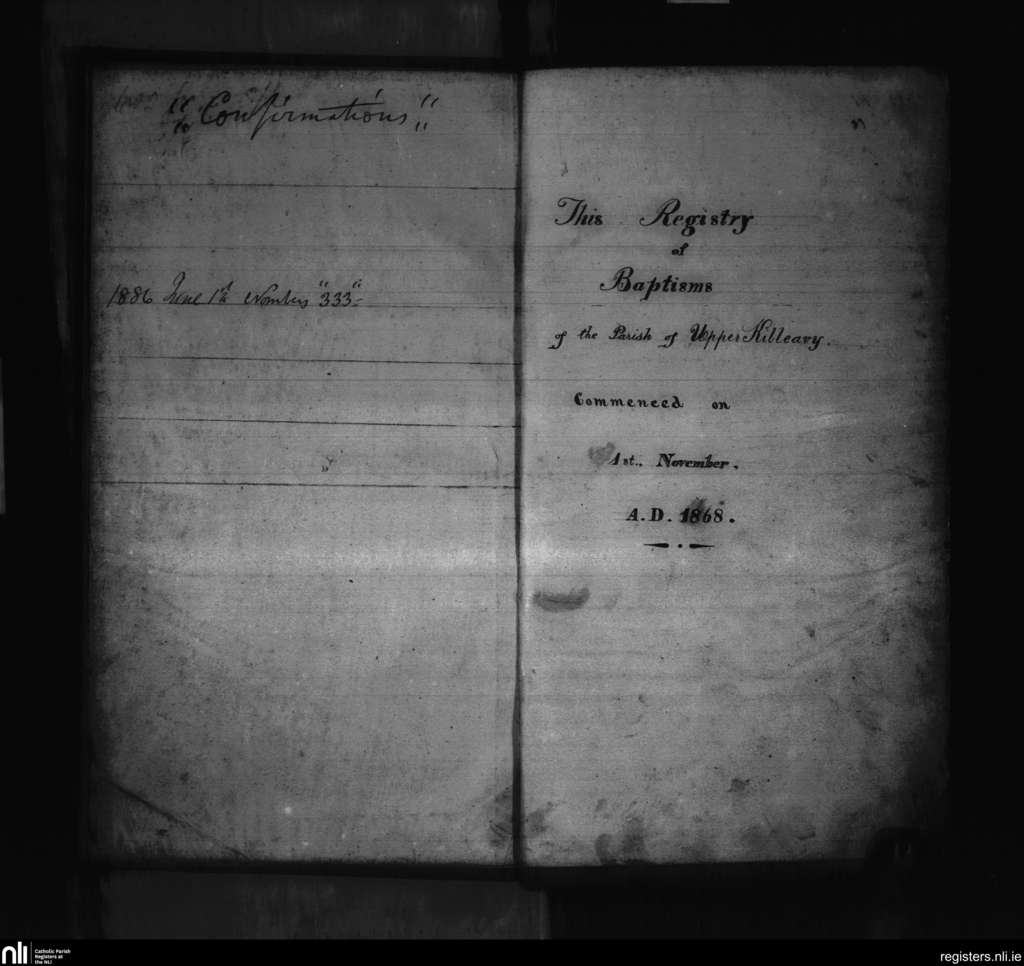 "Confirmations"
1886 June 1st Numbers "333"
This Registry
of
Baptisms
of the Parish of Upper Killeavy.
Commenced on
1st., November.
A.D. 1868.
nli
Catholic Parish
Registers at
the NLI
registers.nli.ie